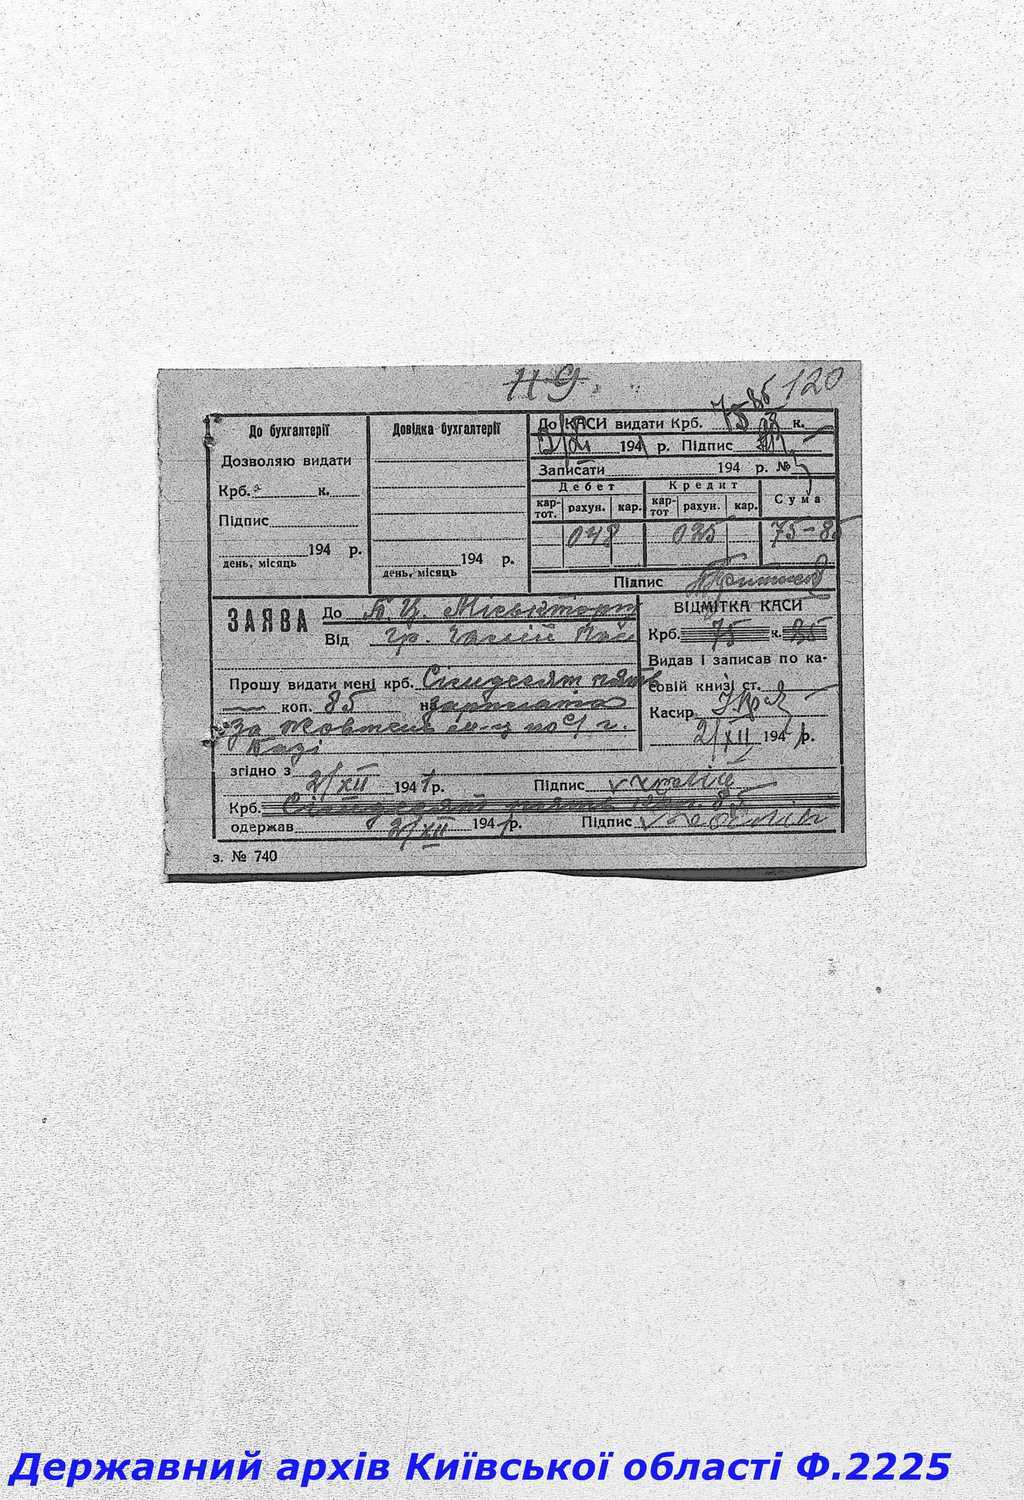 119. 120
До бухгалтерії
Дозволяю видати
Крб. к.
Підпис
194 р.
день, місяць
Довідка бухгалтерії
194 р.
день, місяць
До КАСИ видати Крб. 75 85 к.
2/XII 1941 р. Підпис
Записати 194 р. №
Дебет Кредит Сума
кар-тот. рахун. кар. кар-тот рахун. кар.
048 035 75-85
Підпис
ЗАЯВА До Міськторгу
Від гр.
Прошу видати мені крб. Сімдесят пять
коп. 85 на зарплата
За жовтень м-ц по с/г.
згідно з
2/XII 1941 р. Підпис
Крб. Сімдесят пять коп. 85
одержав 2/XII 1941 р. Підпис
ВІДМІТКА КАСИ
Крб. 75 к. 85
Видав і записав по ка-
совій книзі ст.
Касир
2/XII 1941 р.
з. № 740
Державний архів Київської області Ф.2225